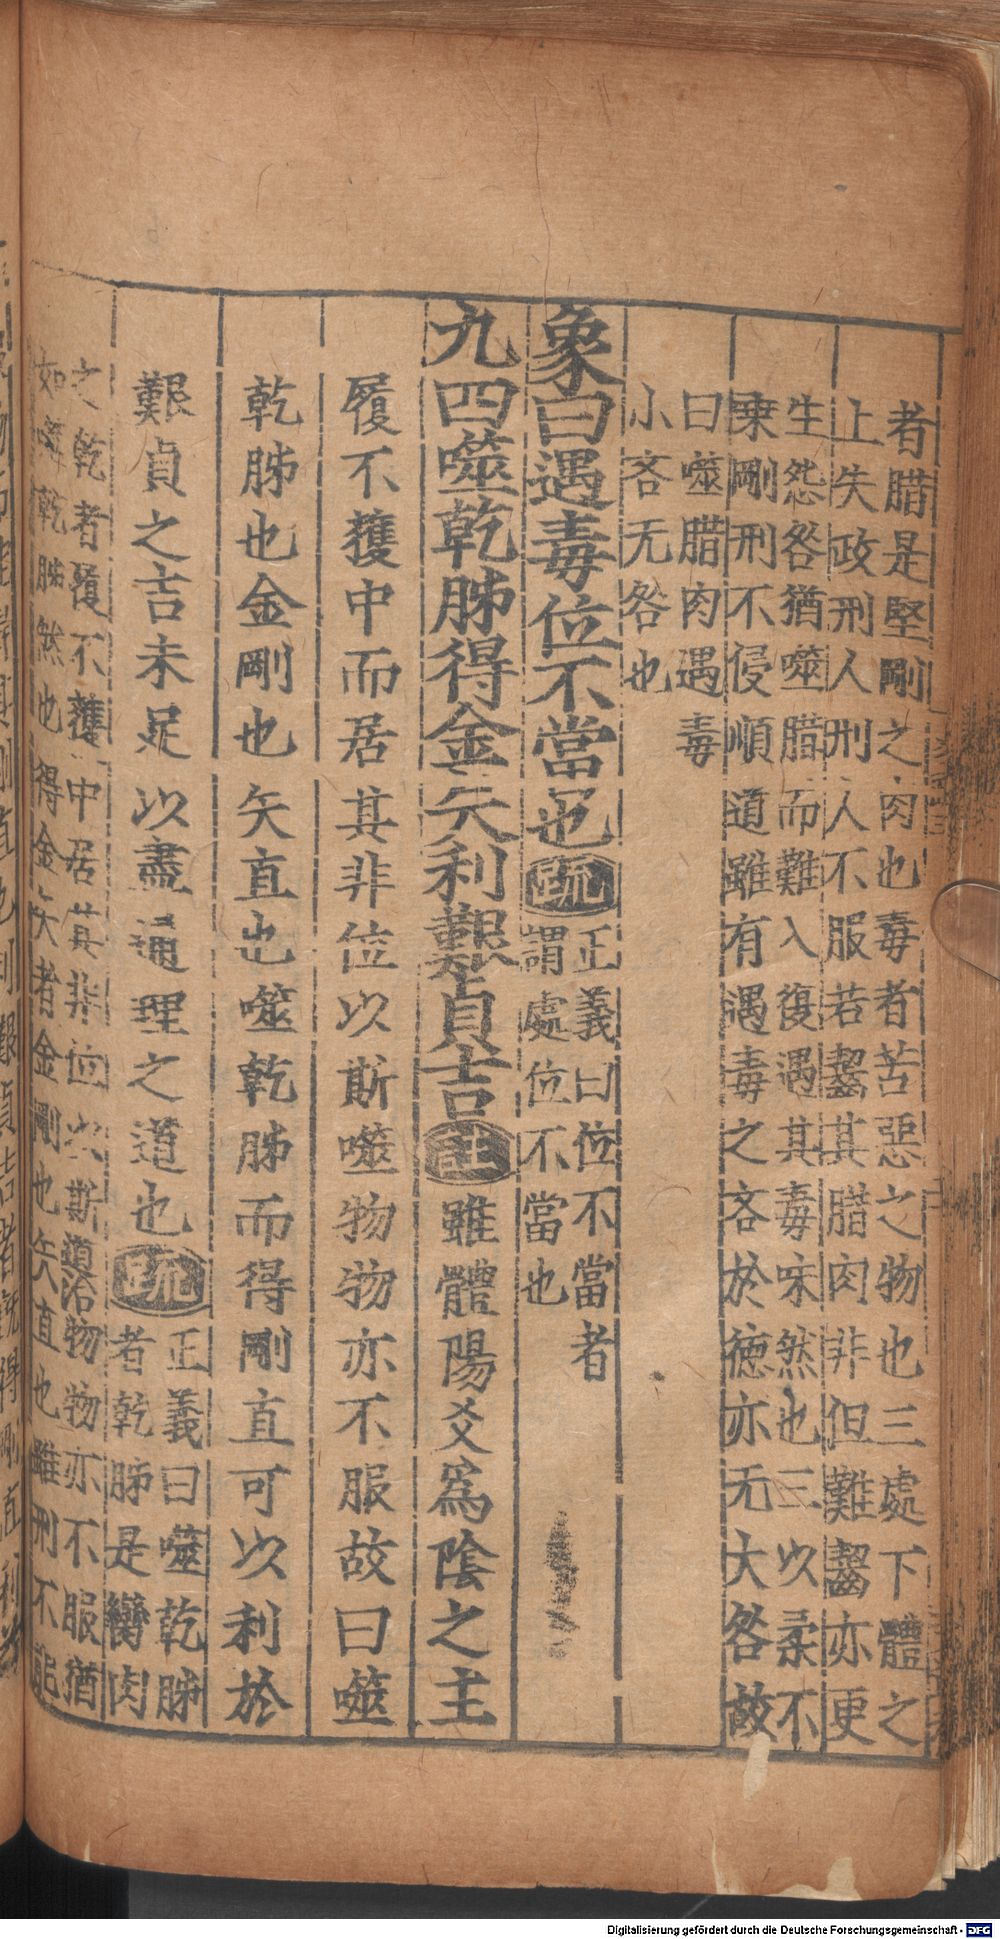 者腊是堅剛之肉也毒者苦惡之物也三處下體之
上失政刑人刑人不服若齧其腊肉非但難齧亦更
生怨咎猶噬腊而難入復遇其毒味然也三以柔不
乗剛刑不侵順道雖有遇毒之吝於德亦无大咎故
曰噬腊肉遇毒
小吝无咎也
象曰遇毒位不當也疏正義曰位不當者
謂處位不當也
九四噬乾胏得金矢利艱貞吉註雖體陽爻爲陰之主
履不獲中而居其非位以斯噬物物亦不服故曰噬
乾胏也金剛也矢直也噬乾胏而得剛直可以利於
艱貞之吉未足以盡通理之道也疏正義曰噬乾胏
者乾胏是臠肉
之乾者履不獲中居其非位以斯治物物亦不服猶
如噬乾胏然也得金矢者金剛也矢直也雖刑不能
Digitalisierung gefördert durch die Deutsche Forschungsgemeinschaft - DFG